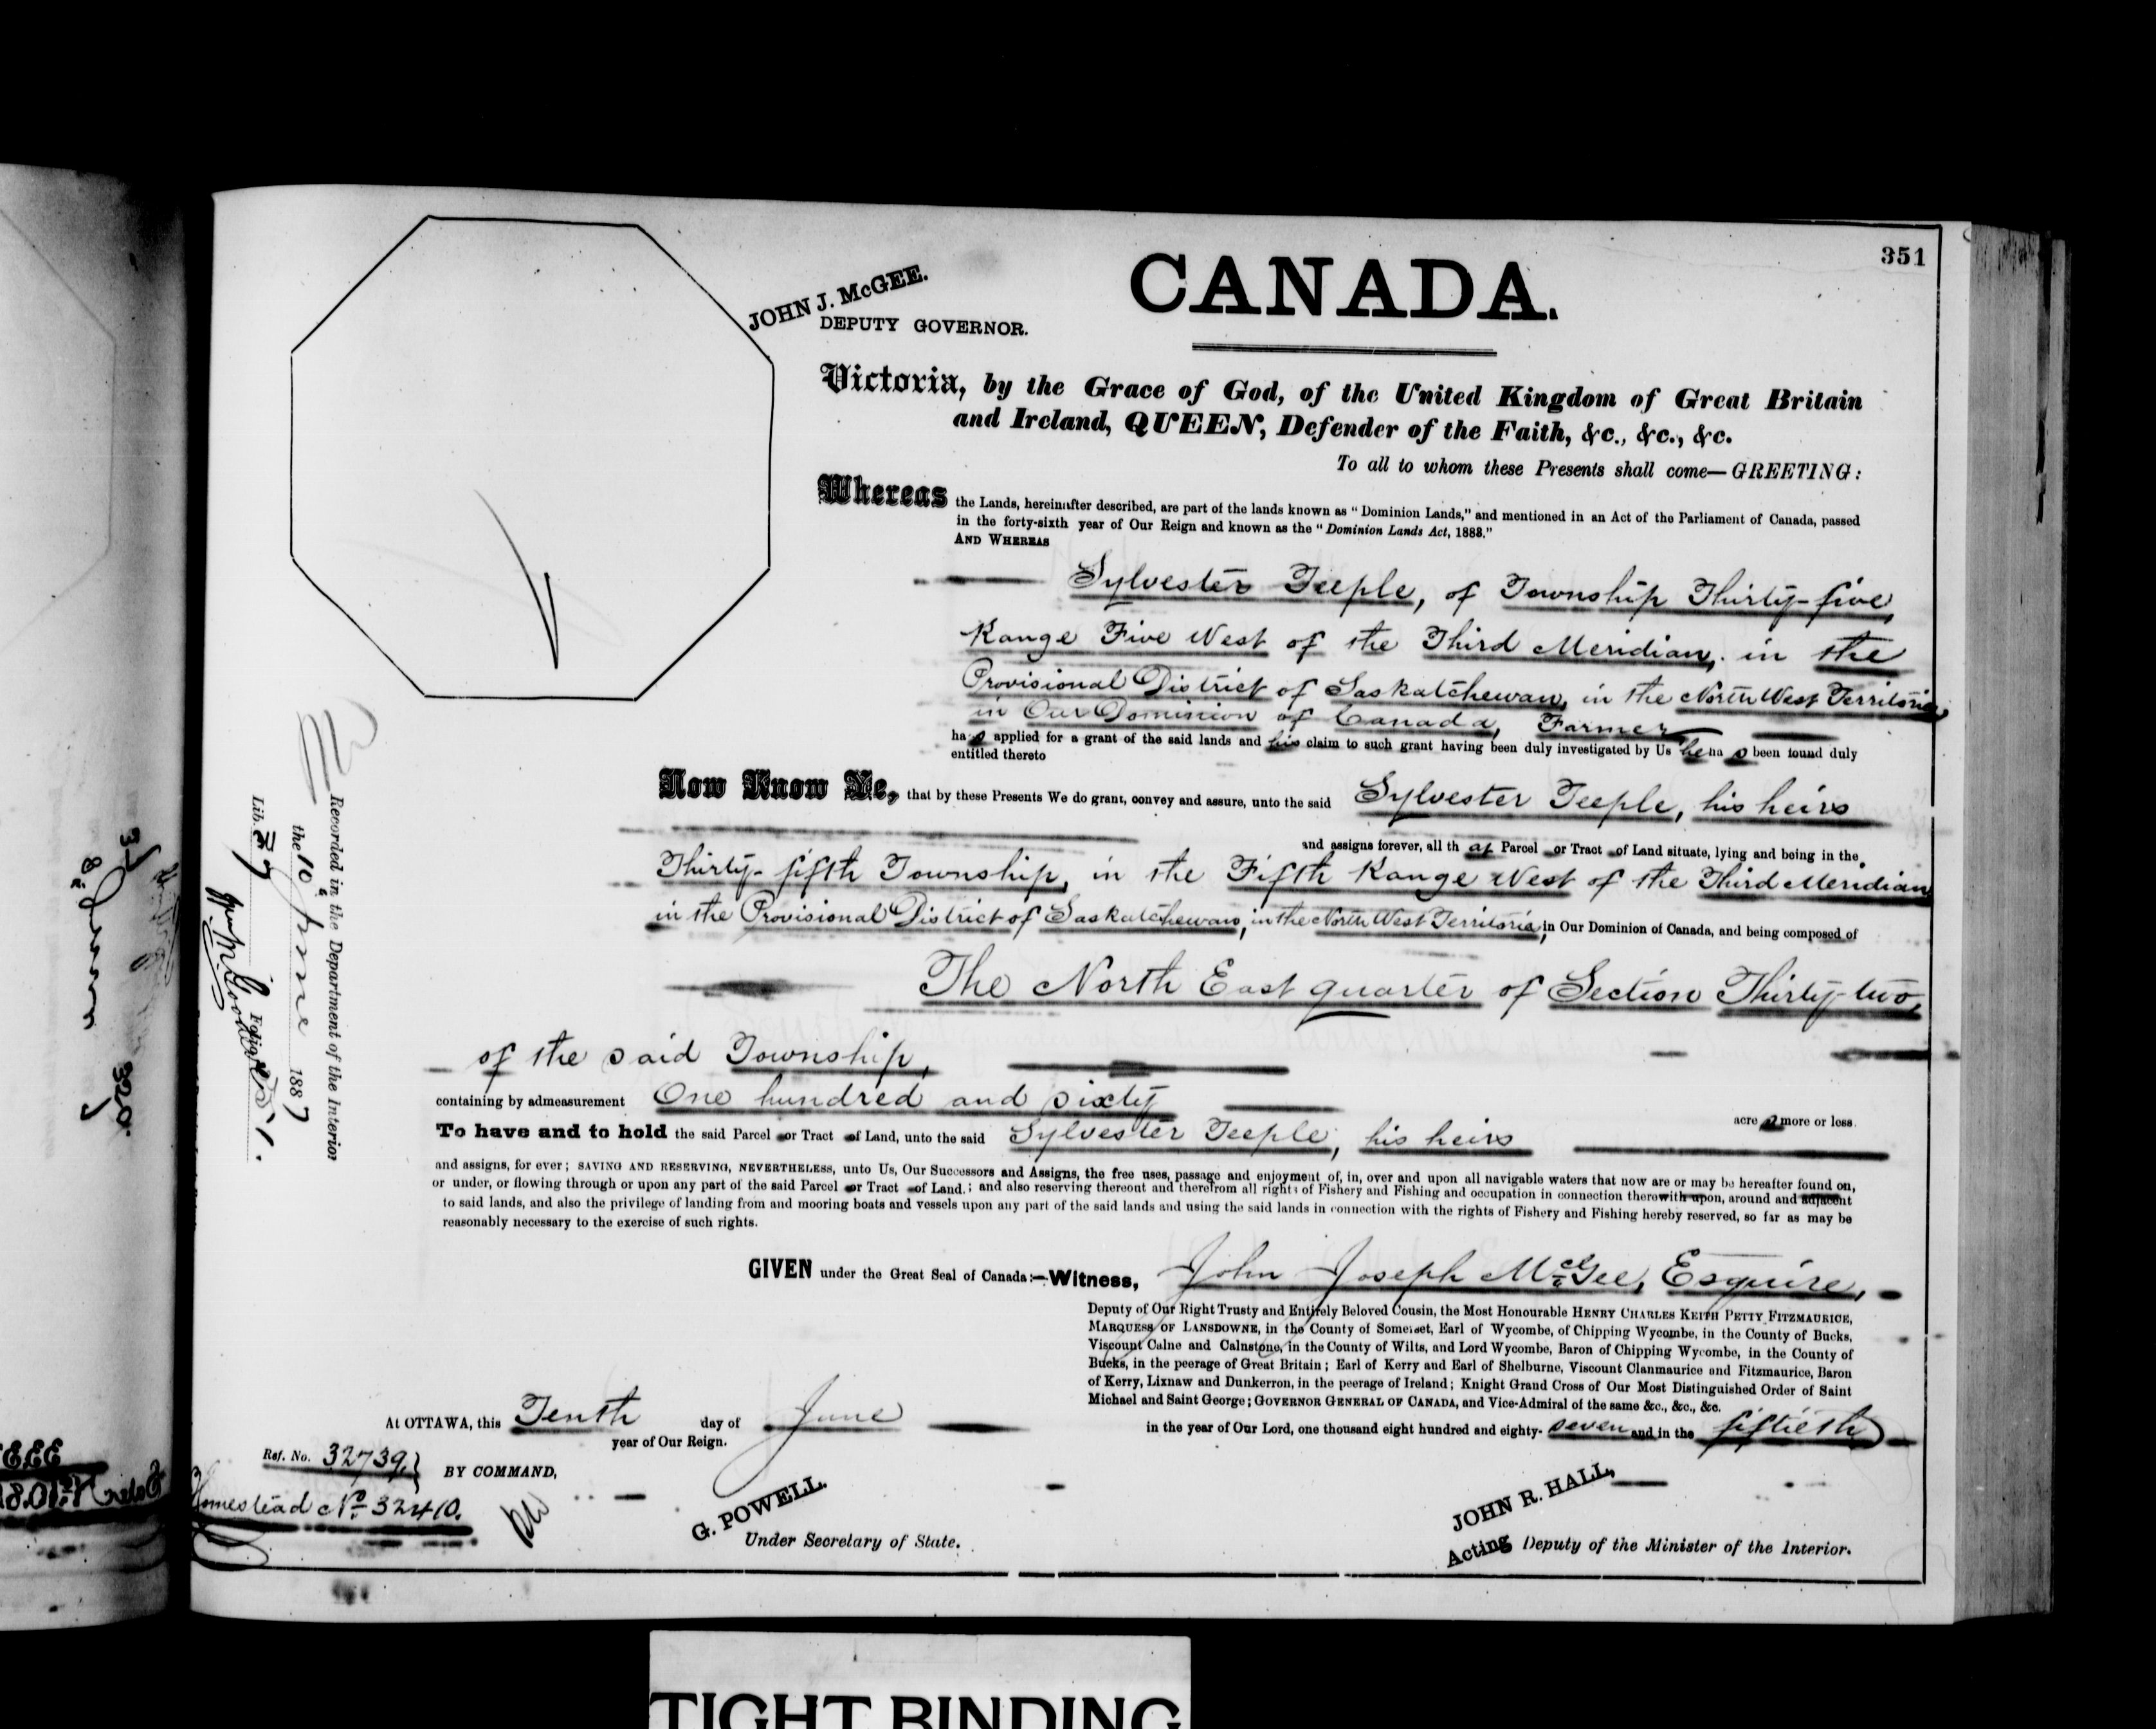 351
CANADA.
JOHN J. McGEE.
DEPUTY GOVERNOR.
Victoria, by the Grace of God, of the United Kingdom of Great Britain
and Ireland, QUEEN, Defender of the Faith, &c., &c., &c.
To all to whom these Presents shall come—GREETING:
Whereas the Lands, hereinafter described, are part of the lands known as "Dominion Lands," and mentioned in an Act of the Parliament of Canada, passed
in the forty-sixth year of Our Reign and known as the "Dominion Lands Act, 1883."
AND WHEREAS
Sylvester Teeple, of Township Thirty-five,
Range Five West of the Third Meridian, in the
Provisional District of Saskatchewan, in the North West Territories
in Our Dominion of Canada, Farmer
has applied for a grant of the said lands and his claim to such grant having been duly investigated by Us he has been found duly
entitled thereto
Now Know Ye, that by these Presents We do grant, convey and assure, unto the said Sylvester Teeple, his heirs
and assigns forever, all that Parcel or Tract of Land situate, lying and being in the
Thirty-fifth Township, in the Fifth Range West of the Third Meridian
in the Provisional District of Saskatchewan, in the North West Territories, in Our Dominion of Canada, and being composed of
The North East quarter of Section Thirty-two,
of the said Township,
containing by admeasurement One hundred and sixty
acres more or less.
To have and to hold the said Parcel or Tract of Land, unto the said Sylvester Teeple, his heirs
and assigns, for ever; SAVING AND RESERVING, NEVERTHELESS, unto Us, Our Successors and Assigns, the free uses, passage and enjoyment of, in, over and upon all navigable waters that now are or may be hereafter found on,
or under, or flowing through or upon any part of the said Parcel or Tract of Land.; and also reserving thereout and therefrom all rights of Fishery and Fishing and occupation in connection therewith upon, around and adjacent
to said lands, and also the privilege of landing from and mooring boats and vessels upon any part of the said lands and using the said lands in connection with the rights of Fishery and Fishing hereby reserved, so far as may be
reasonably necessary to the exercise of such rights.
GIVEN under the Great Seal of Canada:—Witness, John Joseph McGee, Esquire,
Deputy of Our Right Trusty and Entirely Beloved Cousin, the Most Honourable HENRY CHARLES KEITH PETTY FITZMAURICE,
MARQUESS OF LANSDOWNE, in the County of Somerset, Earl of Wycombe, of Chipping Wycombe, in the County of Bucks,
Viscount Calne and Calnstone, in the County of Wilts, and Lord Wycombe, Baron of Chipping Wycombe, in the County of
Bucks, in the peerage of Great Britain; Earl of Kerry and Earl of Shelburne, Viscount Clanmaurice and Fitzmaurice, Baron
of Kerry, Lixnaw and Dunkerron, in the peerage of Ireland; Knight Grand Cross of Our Most Distinguished Order of Saint
Michael and Saint George; GOVERNOR GENERAL OF CANADA, and Vice-Admiral of the same &c., &c., &c.
At OTTAWA, this Tenth day of June in the year of Our Lord, one thousand eight hundred and eighty-seven and in the fiftieth
year of Our Reign.
Ref. No. 32739.
BY COMMAND,
Homestead No. 32410.
G. POWELL.
Under Secretary of State.
JOHN R. HALL,
Acting Deputy of the Minister of the Interior.
Recorded in the Department of the Interior
the 10th June 1887
Lib. 37 Folio 351.
TIGHT BINDING